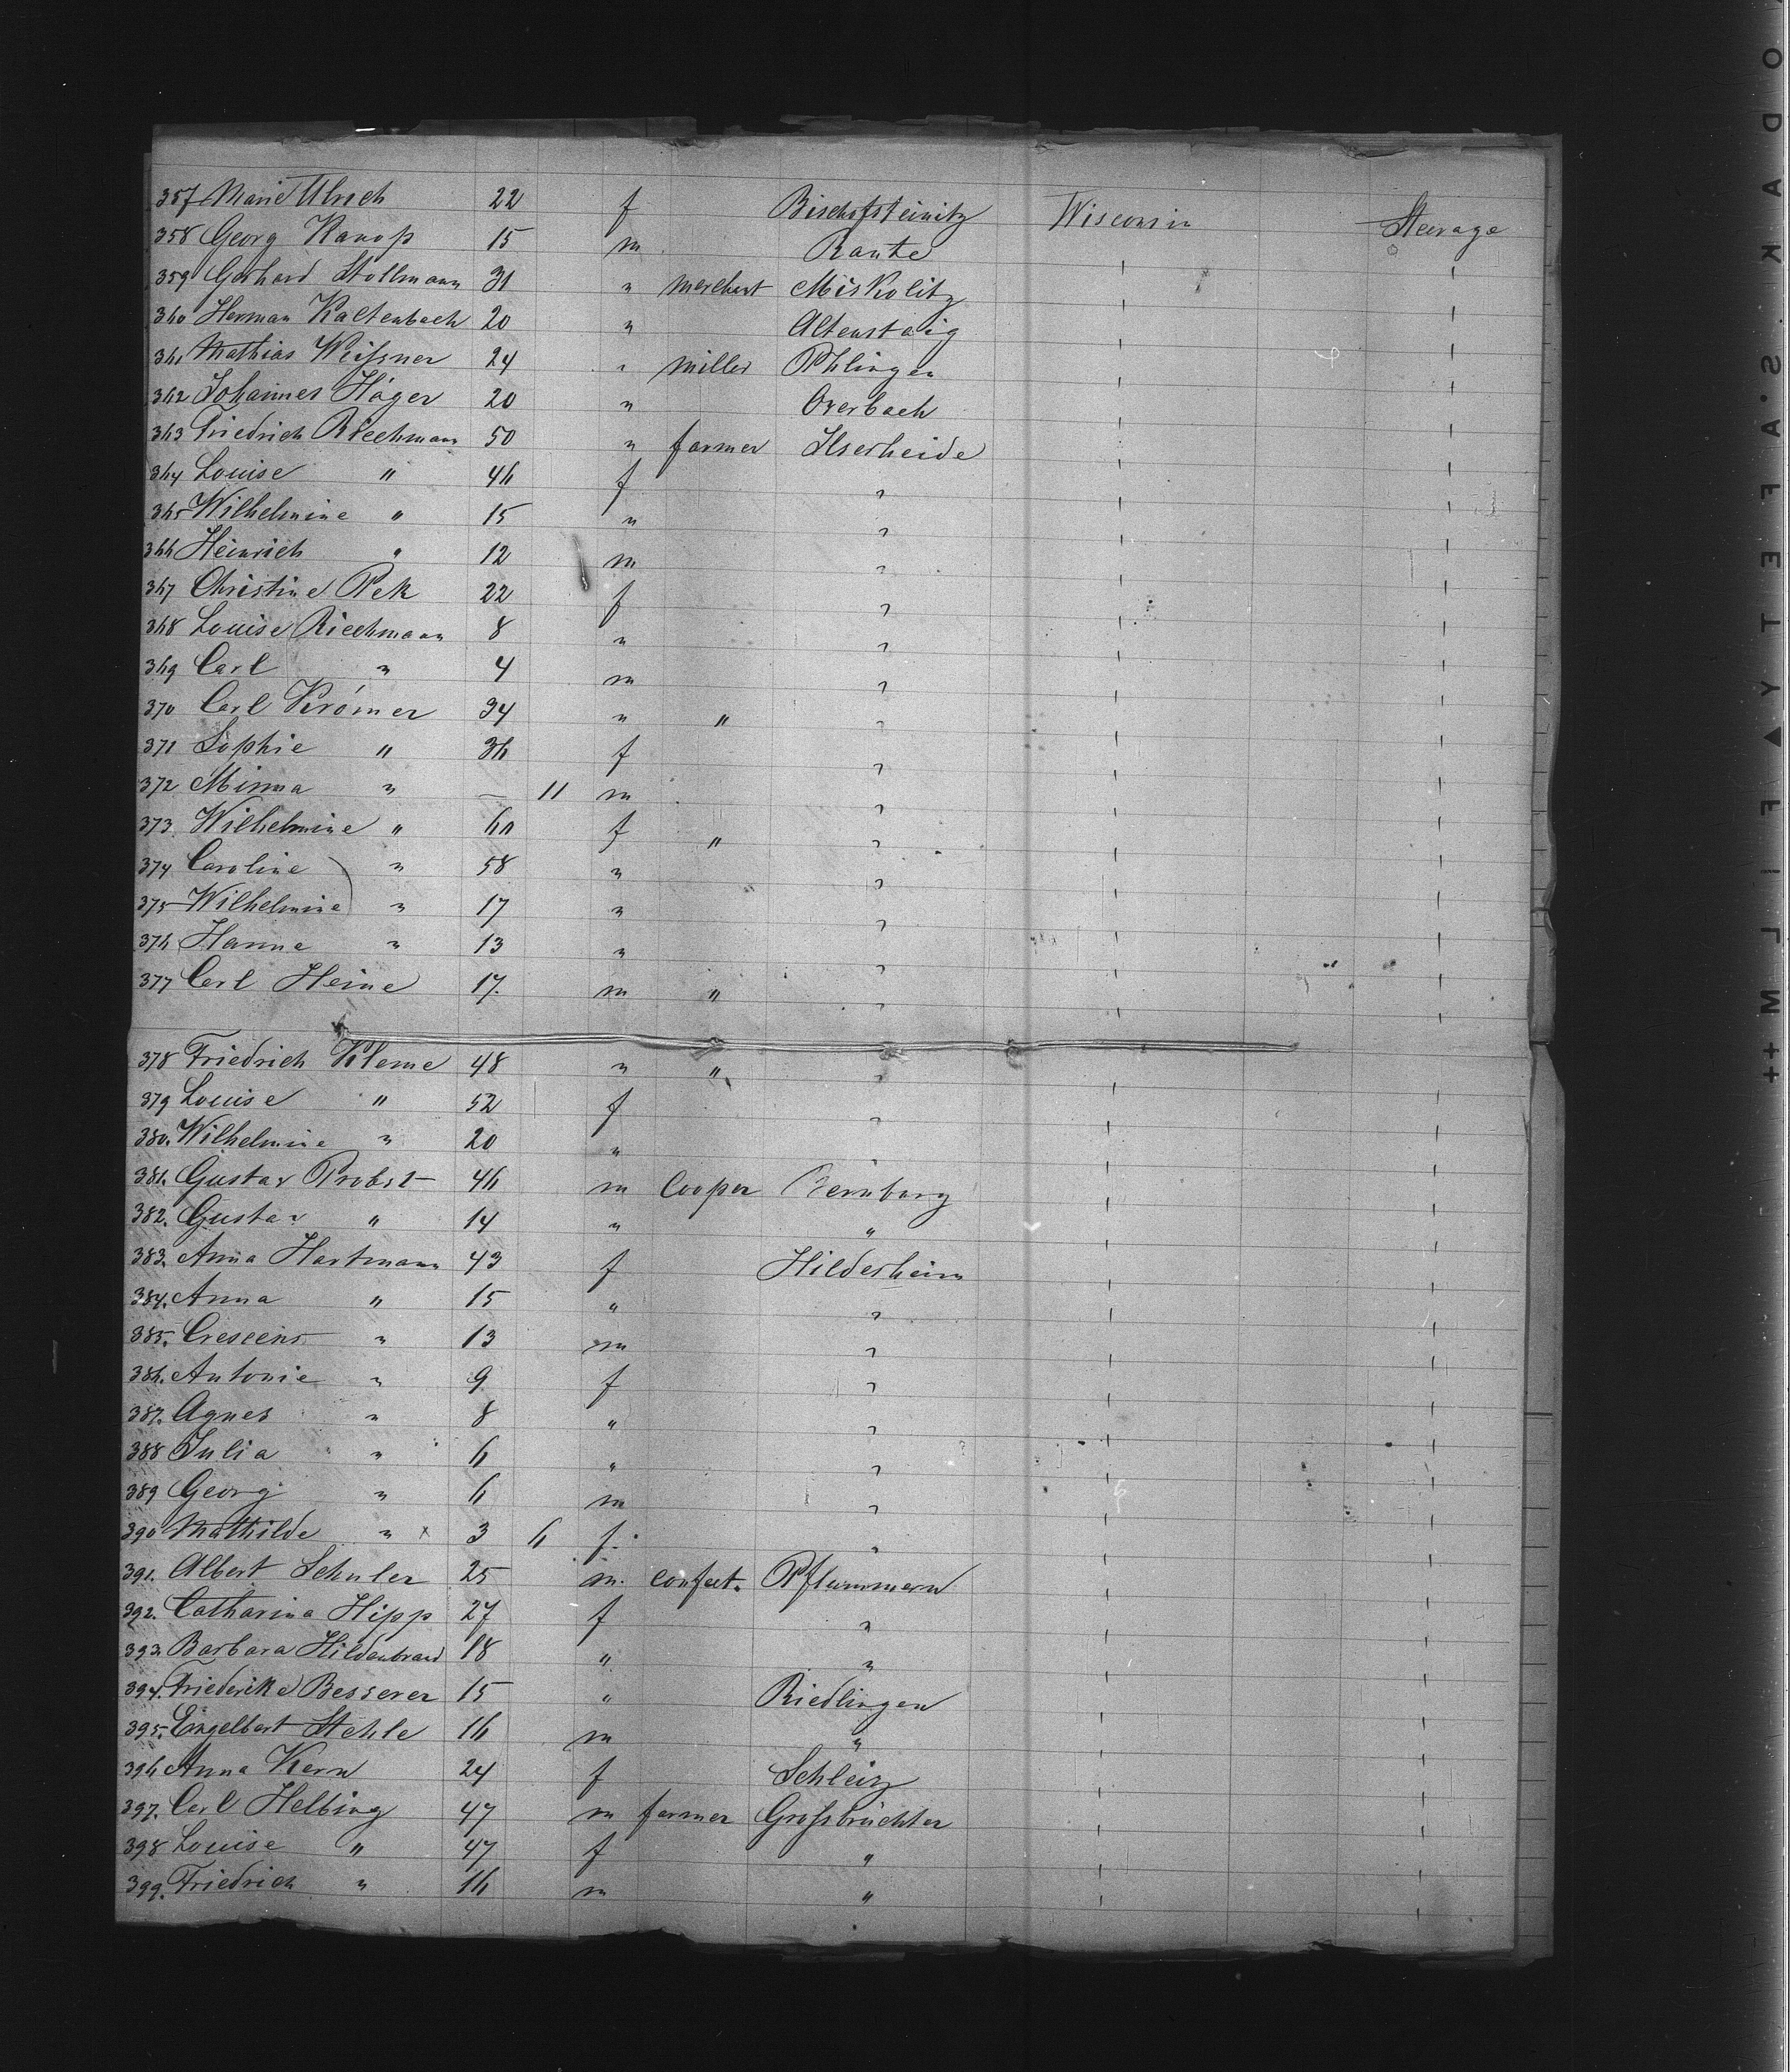 357 Marie Ulrich 22 f Bischofsteinitz Wisconsin Steerage
358 Georg Kanop 15 m Rante
359 Gerhard Stollmann 31 " merchant Miskolitz
360 Herman Kaltenbach 20 " Altenstaig
361 Mathias Weißner 24 " miller Phlingen
362 Johannes Häger 20 " Overbach
363 Friedrich Riechmann 50 " farmer Ilserheide
364 Louise " 46 f "
365 Wilhelmine " 15 " "
366 Heinrich " 12 m "
367 Christine Pek 22 f "
368 Louise Riechmann 8 " "
369 Carl " 4 m "
370 Carl Krömer 34 " " "
371 Sophie " 36 f "
372 Minna " — 11 m "
373 Wilhelmine " f " "
374 Caroline " 58 " "
375 Wilhelmine " 17 " "
376 Hanne " 13 " "
377 Carl Heine 17. m " "
378 Friedrich Kleme 48 " " "
379 Louise " 52 f "
380. Wilhelmine " 20 " "
381. Gustav Probst 46 m Cooper Bernburg
382. Gustav " 14 " "
383. Anna Hartmann 43 f Hildesheim
384. Anna " 15 " "
385. Crescens " 13 m "
386. Antonie " 9 f "
387. Agnes " 8 " "
388 Julia " 6 " "
389 Georg " 6 m "
390 Mathilde " x 3 6 f. "
391. Albert Schuler 25 m. confect. Pflummern
392. Catharina Hipp 27 f "
393. Barbara Hildenbrand 18 " "
394. Friederike Besserer 15 " Riedlingen
395. Engelbert Stehle 16 m "
396 Anna Kern 24 f Schleiz
397. Carl Helbing 47 m farmer Großbrüchter
398 Louise " 47 f "
399. Friedrich " 16 m "
KODAK S.AFETY ▲ FILM ++